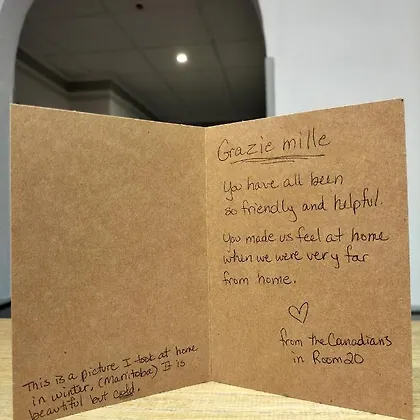 This is a picture I took at home
in winter, (Manitoba) It is
beautiful but cold.
Grazie mille
You have all been
so friendly and helpful.
You made us feel at home
when we were very far
from home.
♡
from the Canadians
in Room 20